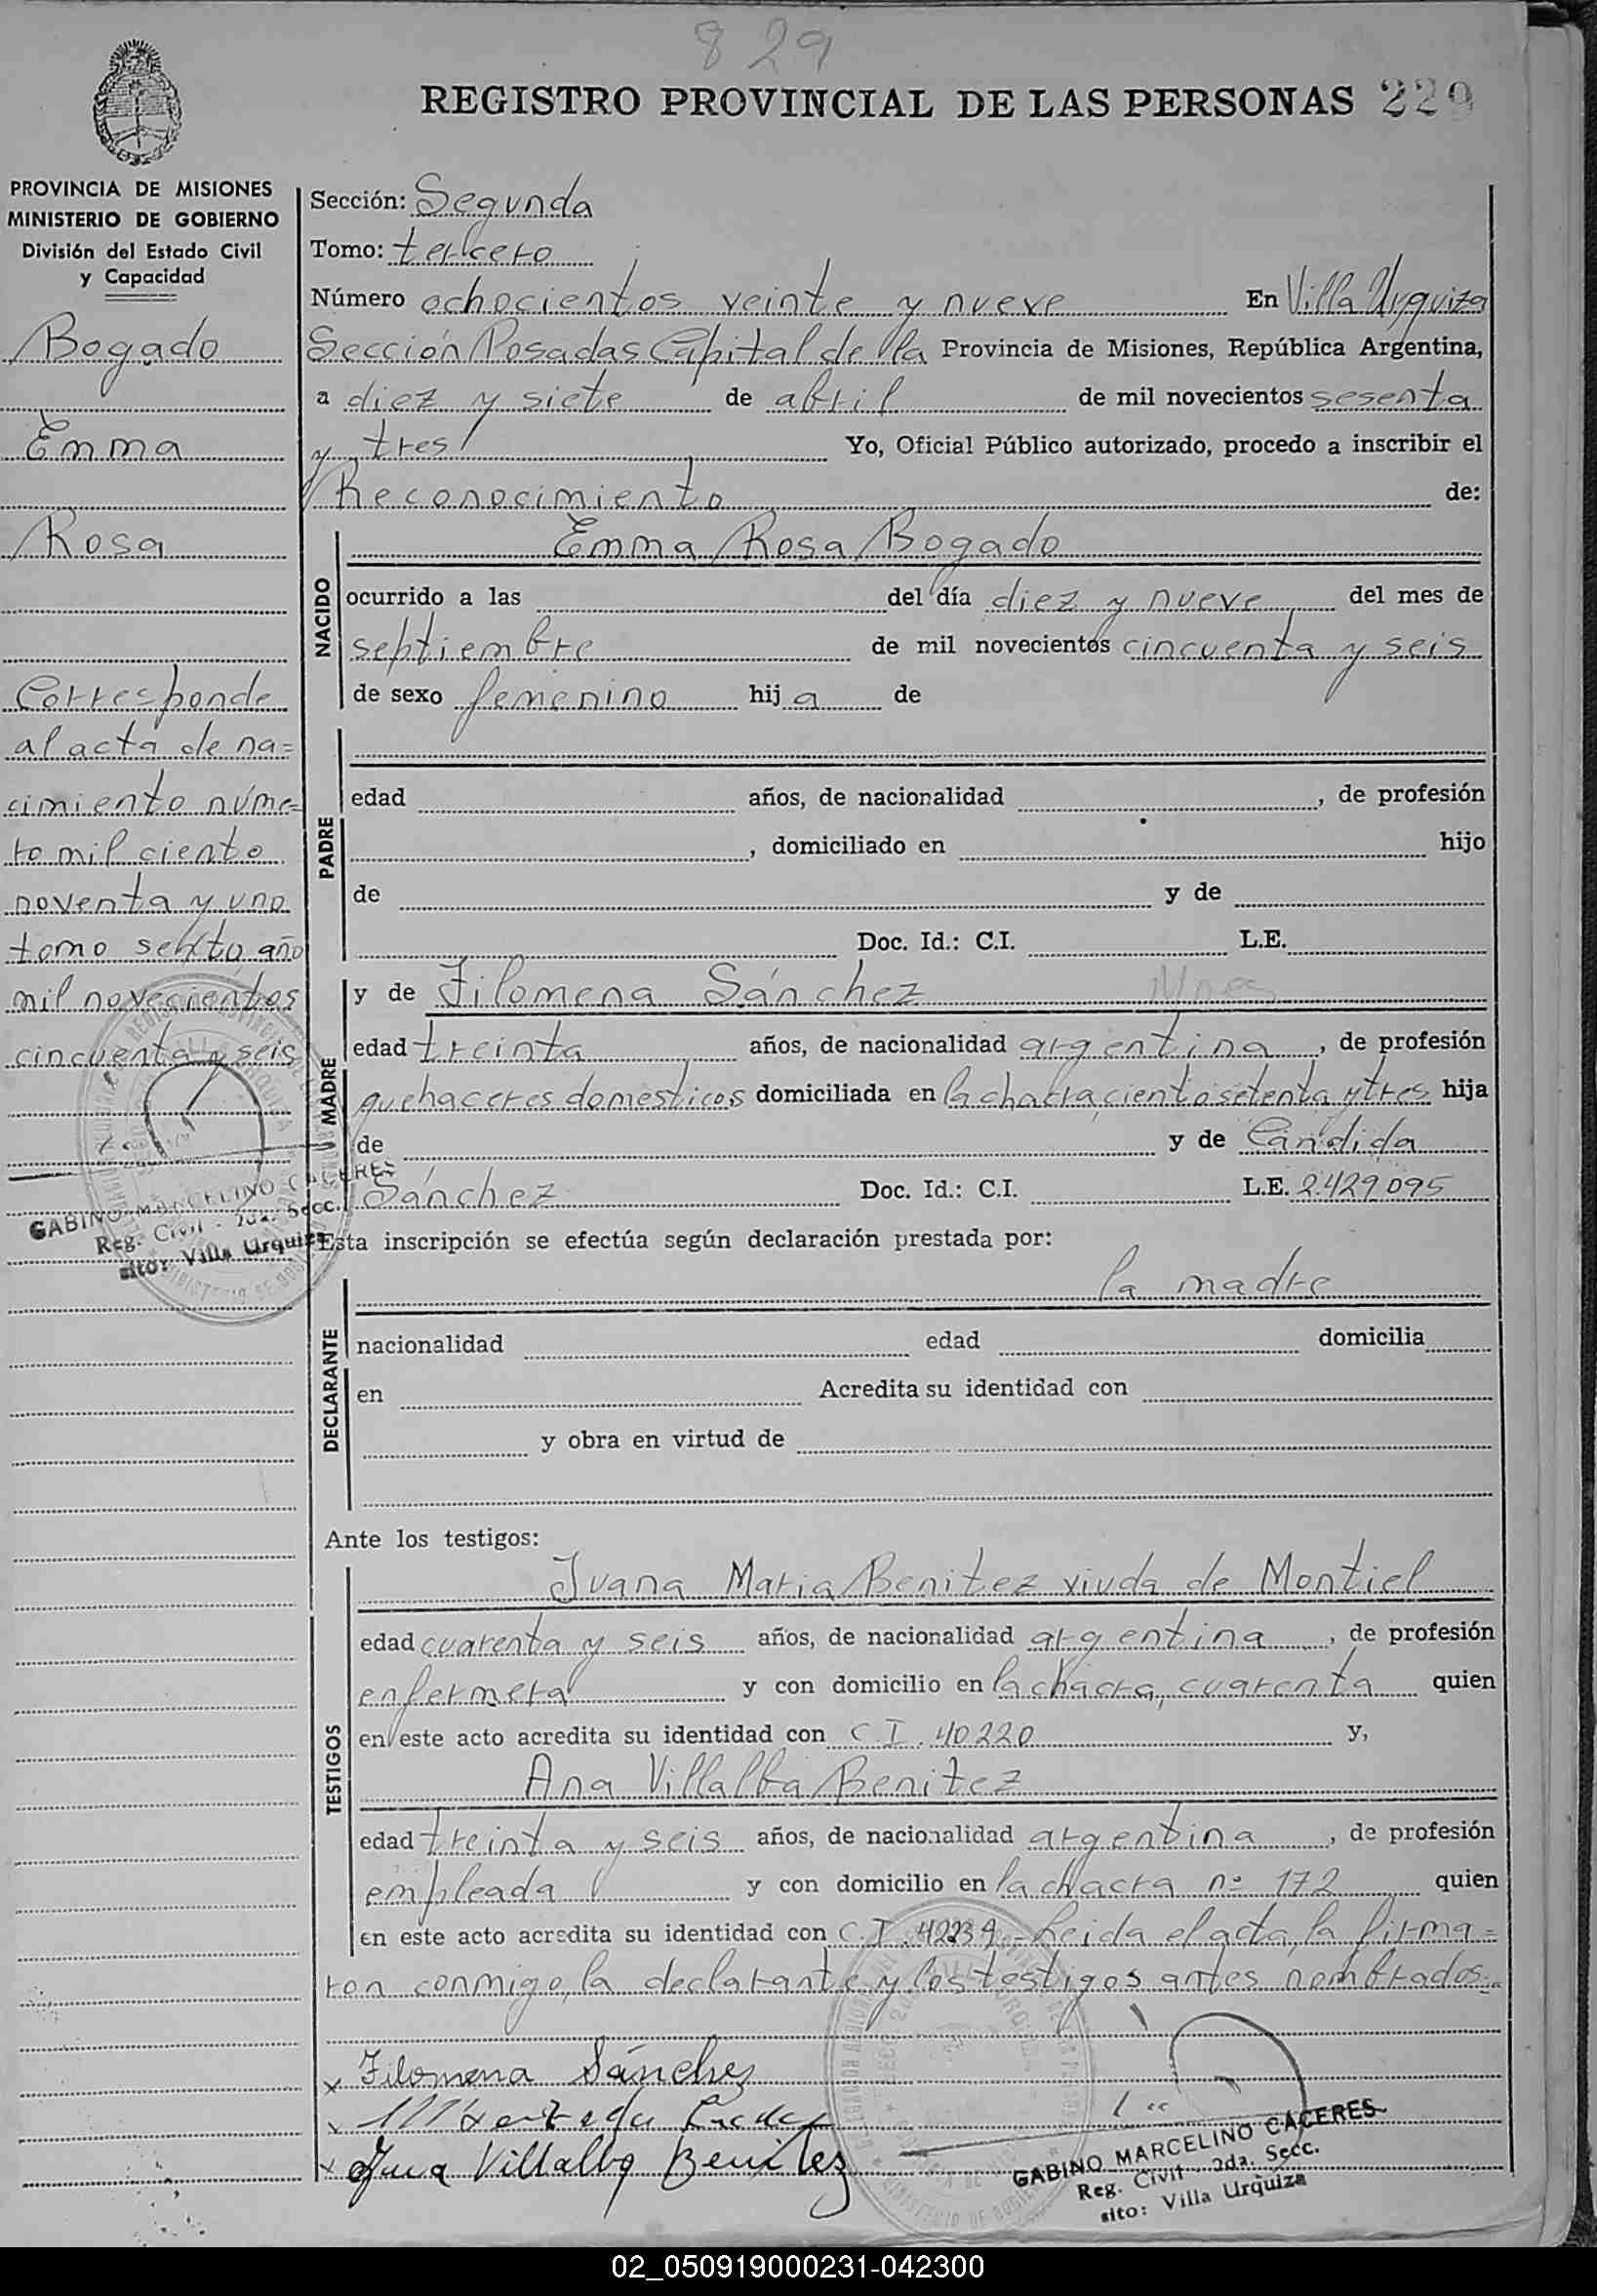 829
REGISTRO PROVINCIAL DE LAS PERSONAS 229
PROVINCIA DE MISIONES
MINISTERIO DE GOBIERNO
División del Estado Civil
y Capacidad
Bogado
Emma
Rosa
Corresponde
al acta de na=
cimiento núme=
ro mil ciento
noventa y uno
tomo sexto año
mil novecientos
cincuenta y seis
GABINO MARCELINO CACERES
Reg. Civil - 2da. Secc.
sito: Villa Urquiza
Sección: Segunda
Tomo: tercero
Número ochocientos veinte y nueve En Villa Urquiza
Sección Posadas Capital de la Provincia de Misiones, República Argentina,
a diez y siete de abril de mil novecientos sesenta
y tres Yo, Oficial Público autorizado, procedo a inscribir el
Reconocimiento de:
NACIDO
Emma Rosa Bogado
ocurrido a las del día diez y nueve del mes de
septiembre de mil novecientos cincuenta y seis
de sexo femenino hij a de
PADRE
edad años, de nacionalidad , de profesión
, domiciliado en hijo
de y de
Doc. Id.: C.I. L.E.
MADRE
y de Filomena Sánchez
edad treinta años, de nacionalidad argentina, de profesión
quehaceres domesticos domiciliada en la chacra ciento setenta y tres hija
de y de Cándida
Sánchez Doc. Id.: C.I. L.E. 2.429.095
Esta inscripción se efectúa según declaración prestada por:
DECLARANTE
la madre
nacionalidad edad domicilia
en Acredita su identidad con
y obra en virtud de
Ante los testigos:
TESTIGOS
Juana Maria Benitez viuda de Montiel
edad cuarenta y seis años, de nacionalidad argentina, de profesión
enfermera y con domicilio en la chacra, cuarenta quien
en este acto acredita su identidad con C.I. 40220 y,
Ana Villalba Benitez
edad treinta y seis años, de nacionalidad argentina, de profesión
empleada y con domicilio en la chacra nº 172 quien
en este acto acredita su identidad con C.I. Leida el acta, la firma=
ron conmigo, la declarante y los testigos antes nombrados.
x Filomena Sánchez
x
x Ana Villalba Benitez
GABINO MARCELINO CACERES
Reg. Civil - 2da. Secc.
sito: Villa Urquiza
02_050919000231-042300